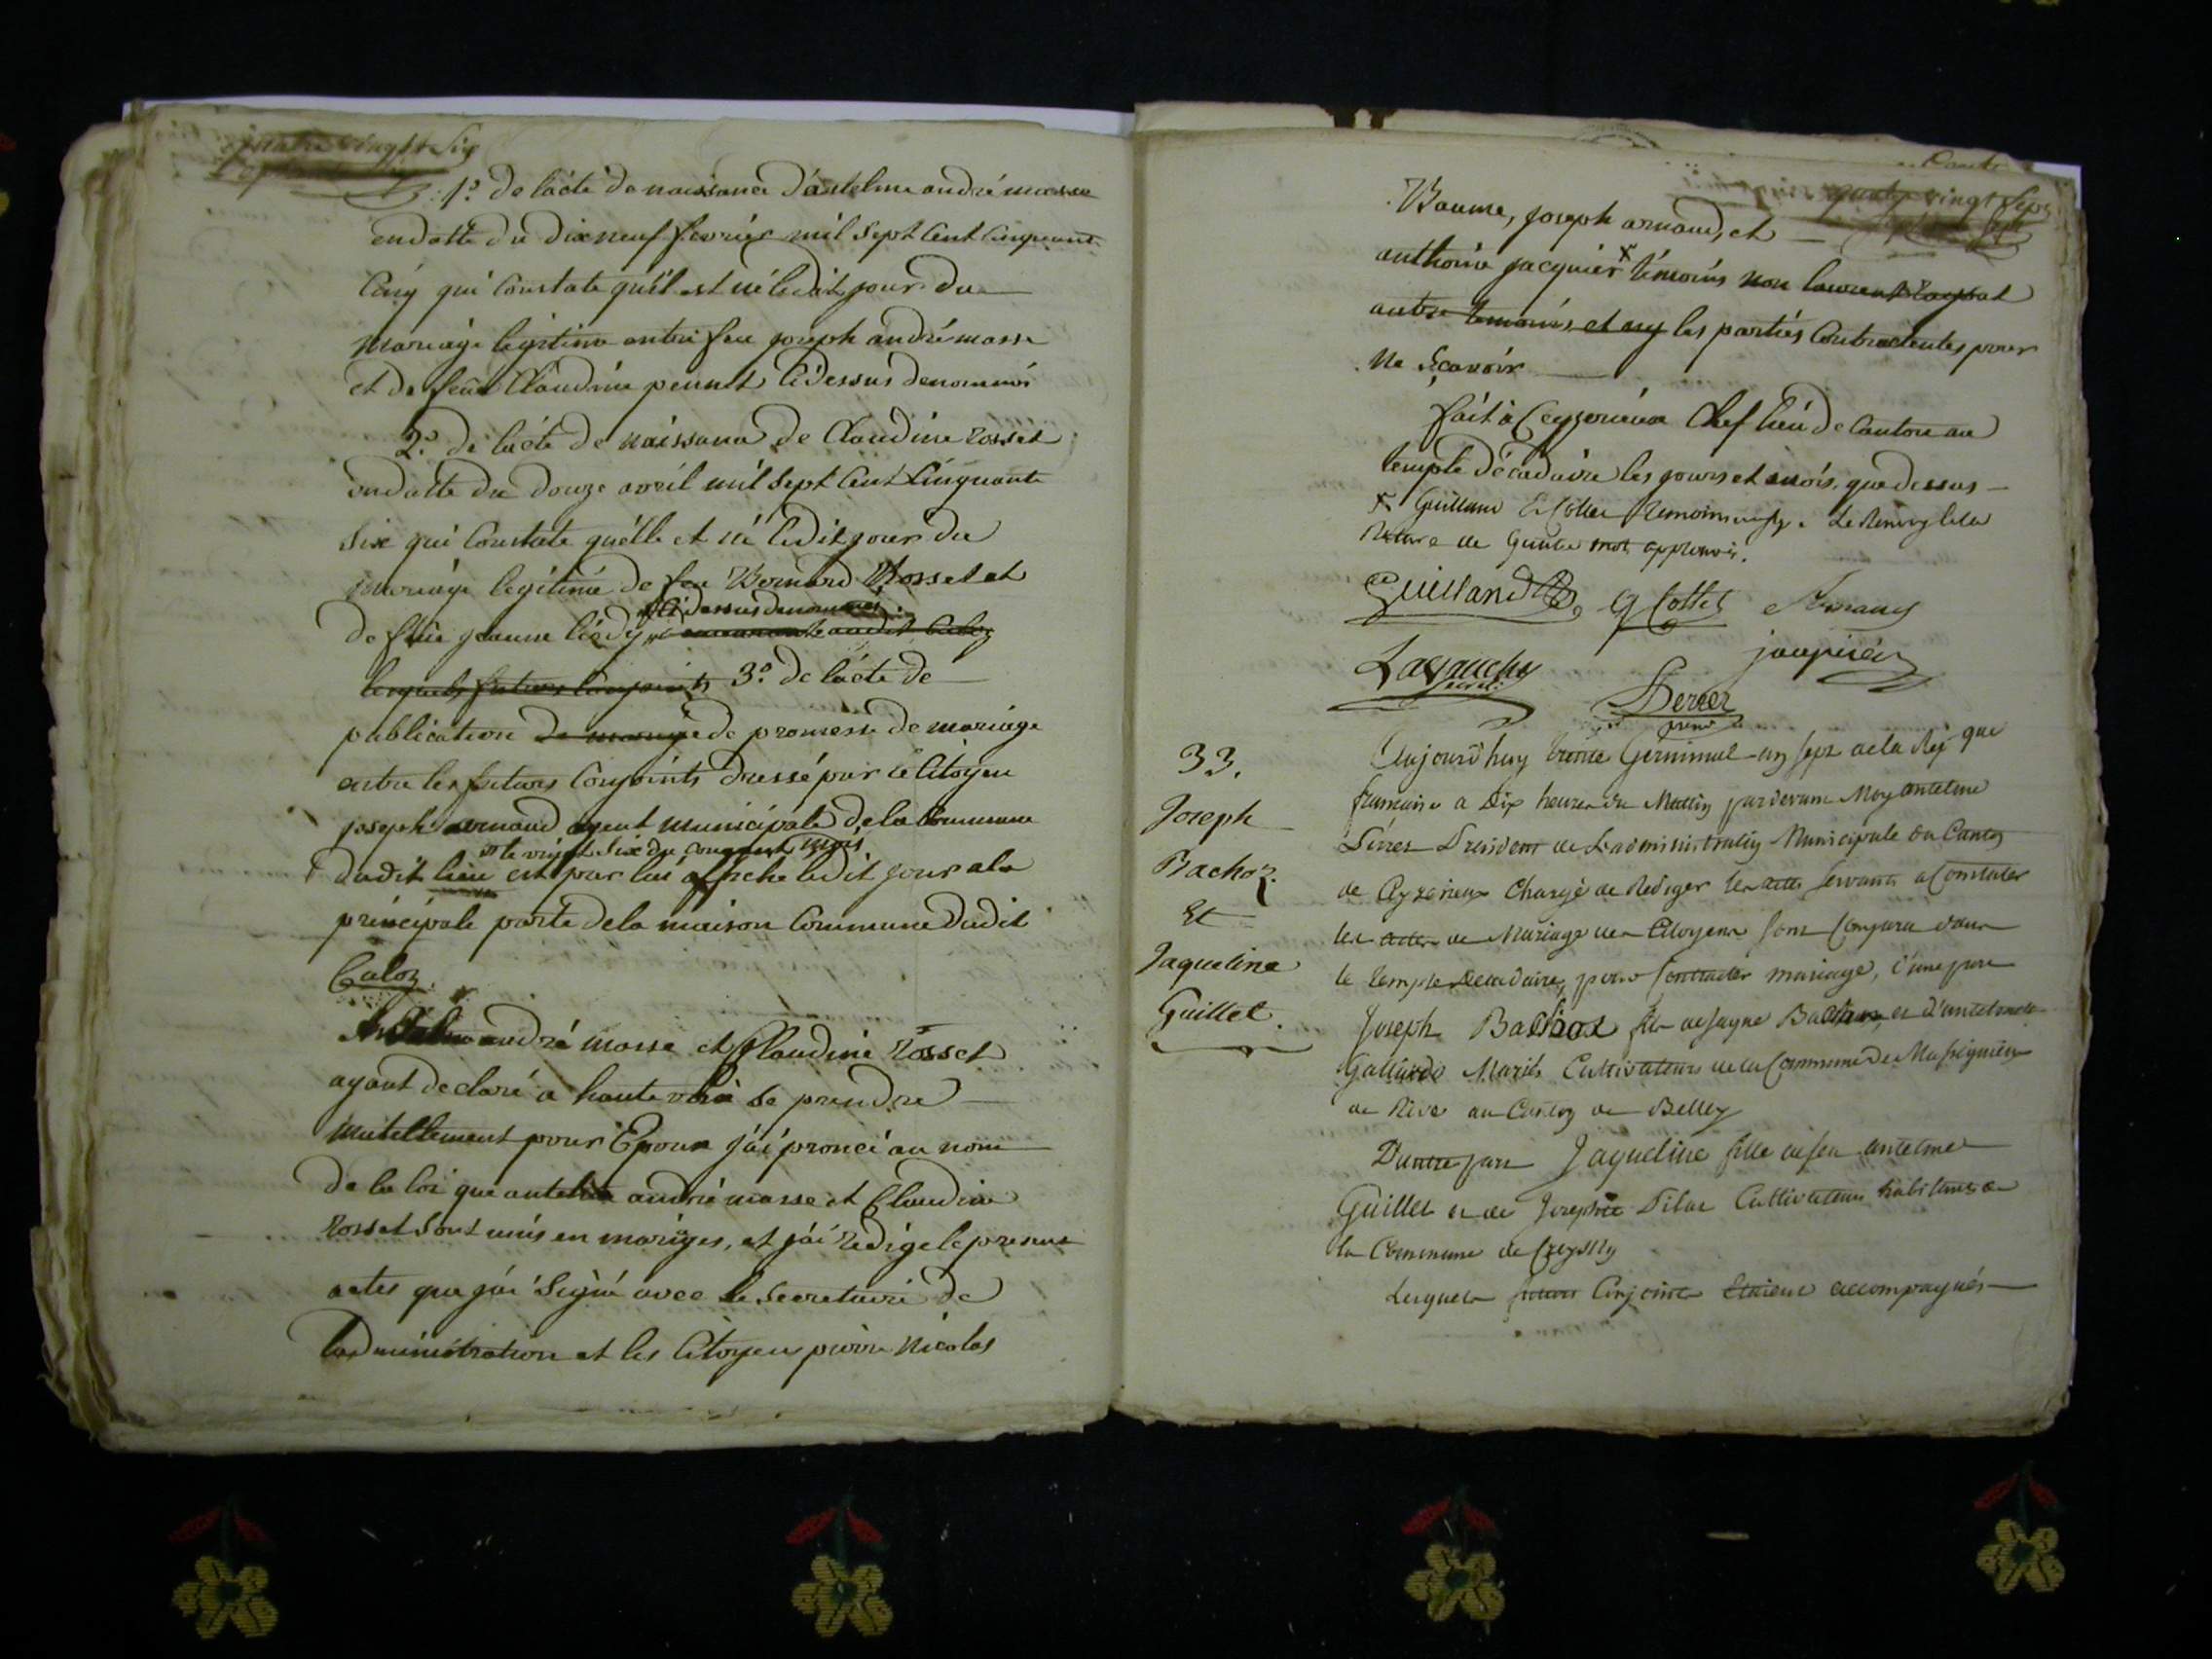 quatre vingt Six
1.º de lácte de naissance d'antelme andré masse
en datte du dix neuf fevrier mil Sept Cent Cinquant
Cinq qui Constate quil est né ledit jour du
mariage legitime entre feu joseph andré masse
et de feüe Claudine pennet Cidessus denommés
2.º de lácte de naissance de Claudine rosset
en datte du douze avril mil Sept Cent Cinquante
Six qui Constate quélle et né ledit jour du
mariage legitime de feu Bernard Rosset et
cidessus denommes.
de feüe jeanne
lesquels futurs Conjoints 3.º de lácte de
publication de mariage de promesse de mariage
entre les futurs Conjoints dressé par le Citoyen
joseph arnaud agent municipale de la Commune
le vingt Six du courant mois
dudit lieu et par lui affiche ledit jour ala
principale porte dela maison Commune dudit
Culoz.
Antelme andré masse et Claudine rosset
ayant declaré a haute voix se prendre
mutellement pour Epoux j'ái proncé au nom
de la loi que antelme andré masse et Claudine
rosset Sont unis en mariges, et j'ái redigé le present
actes que jái Signé avec le Secretaire de
ladministration et les Citoyens pierre Nicolas
quatre vingt Sept
Baume, joseph arnaud, et
anthoine jacquier x témoins non
autre temoins et les parties Contractantes pour
ne Sçavoir
fait à Ceyzerieux Chef lieu de Canton au
temple décadaire les jours et mois que dessus
x Guilland & Collet
de mot approuvé.
Guilland G Collet Arnaud
Lagauche jacquier
Secret:
Serrez
presid
33.
Joseph
Bachoz.
Et
Jaqueline
Guillet.
Aujourd'huy trente Germinal an sept de la Rep que
francaise a Dix heures du Mattin pardevant Moy antelme
Serrez President de L'administration Municipale du Canton
de Ceyzerieux Chargé de Rediger les actes servants a Constater
les actes de Mariage des Citoyens Sont Comparu dans
le temple Decadaire, pour Contracter mariage, d'une part
Joseph Bachoz fils de Jayme Bachoz et d'antelmette
Gallardo Mariés Cultivateurs de la Commune de Massignieu
de Rive au Canton de Belley
D'autre part Jaqueline fille de feu antelme
Guillet et de Josephte Pilat Cultivateurs habitants de
la Commune de
Lesquels futurs Conjoints Etaient accompagnés